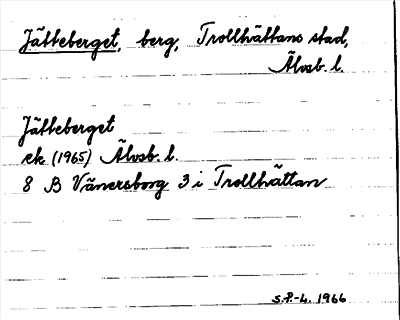 Jätteberget, berg, Trollhättans stad,
Älvsb. l.
Jätteberget
ek (1965) Älvsb. l.
8 B Vänersborg 3 i Trollhättan
S.P.-L. 1966